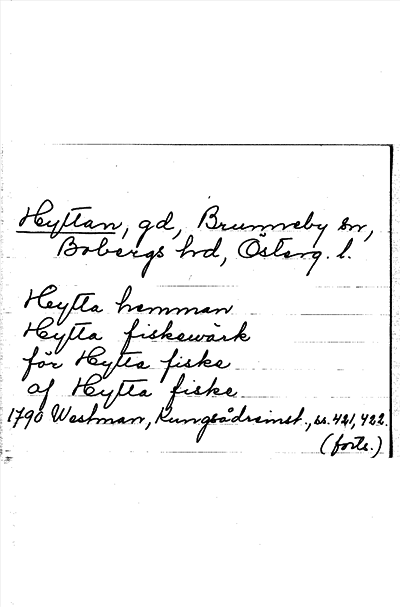 Hyttan, gd, Brunneby sn,
Bobergs hd, Österg. l.
Hytta hemman
Hytta fiskewärk
för Hytta fiske
af Hytta fiske
1790 Westman, Kungsådreinst., ss. 421, 422.
(forts.)